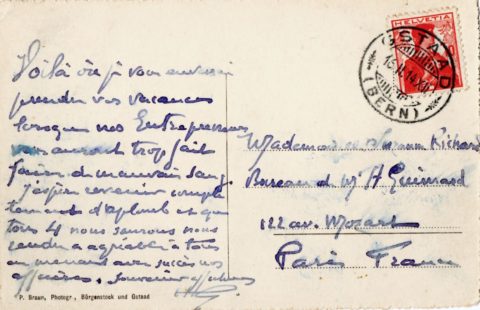 Voilà où je vous enverrai
prendre vos vacances
lorsque nos Entrepreneurs
vous auront trop fait
faire de mauvais sang.
J'espère revenir complè
tement d'aplomb et que
tous 4 nous saurons nous
rendre agréable à tous
en menant avec succès nos
affaires. Souvenir
HELVETIA
GSTAAD
(BERN)
Mademoiselle Richard
Bureau de Mr H Guimard
122 av. Mozart
Paris France
P. Braun, Photogr., Bürgenstock und Gstaad